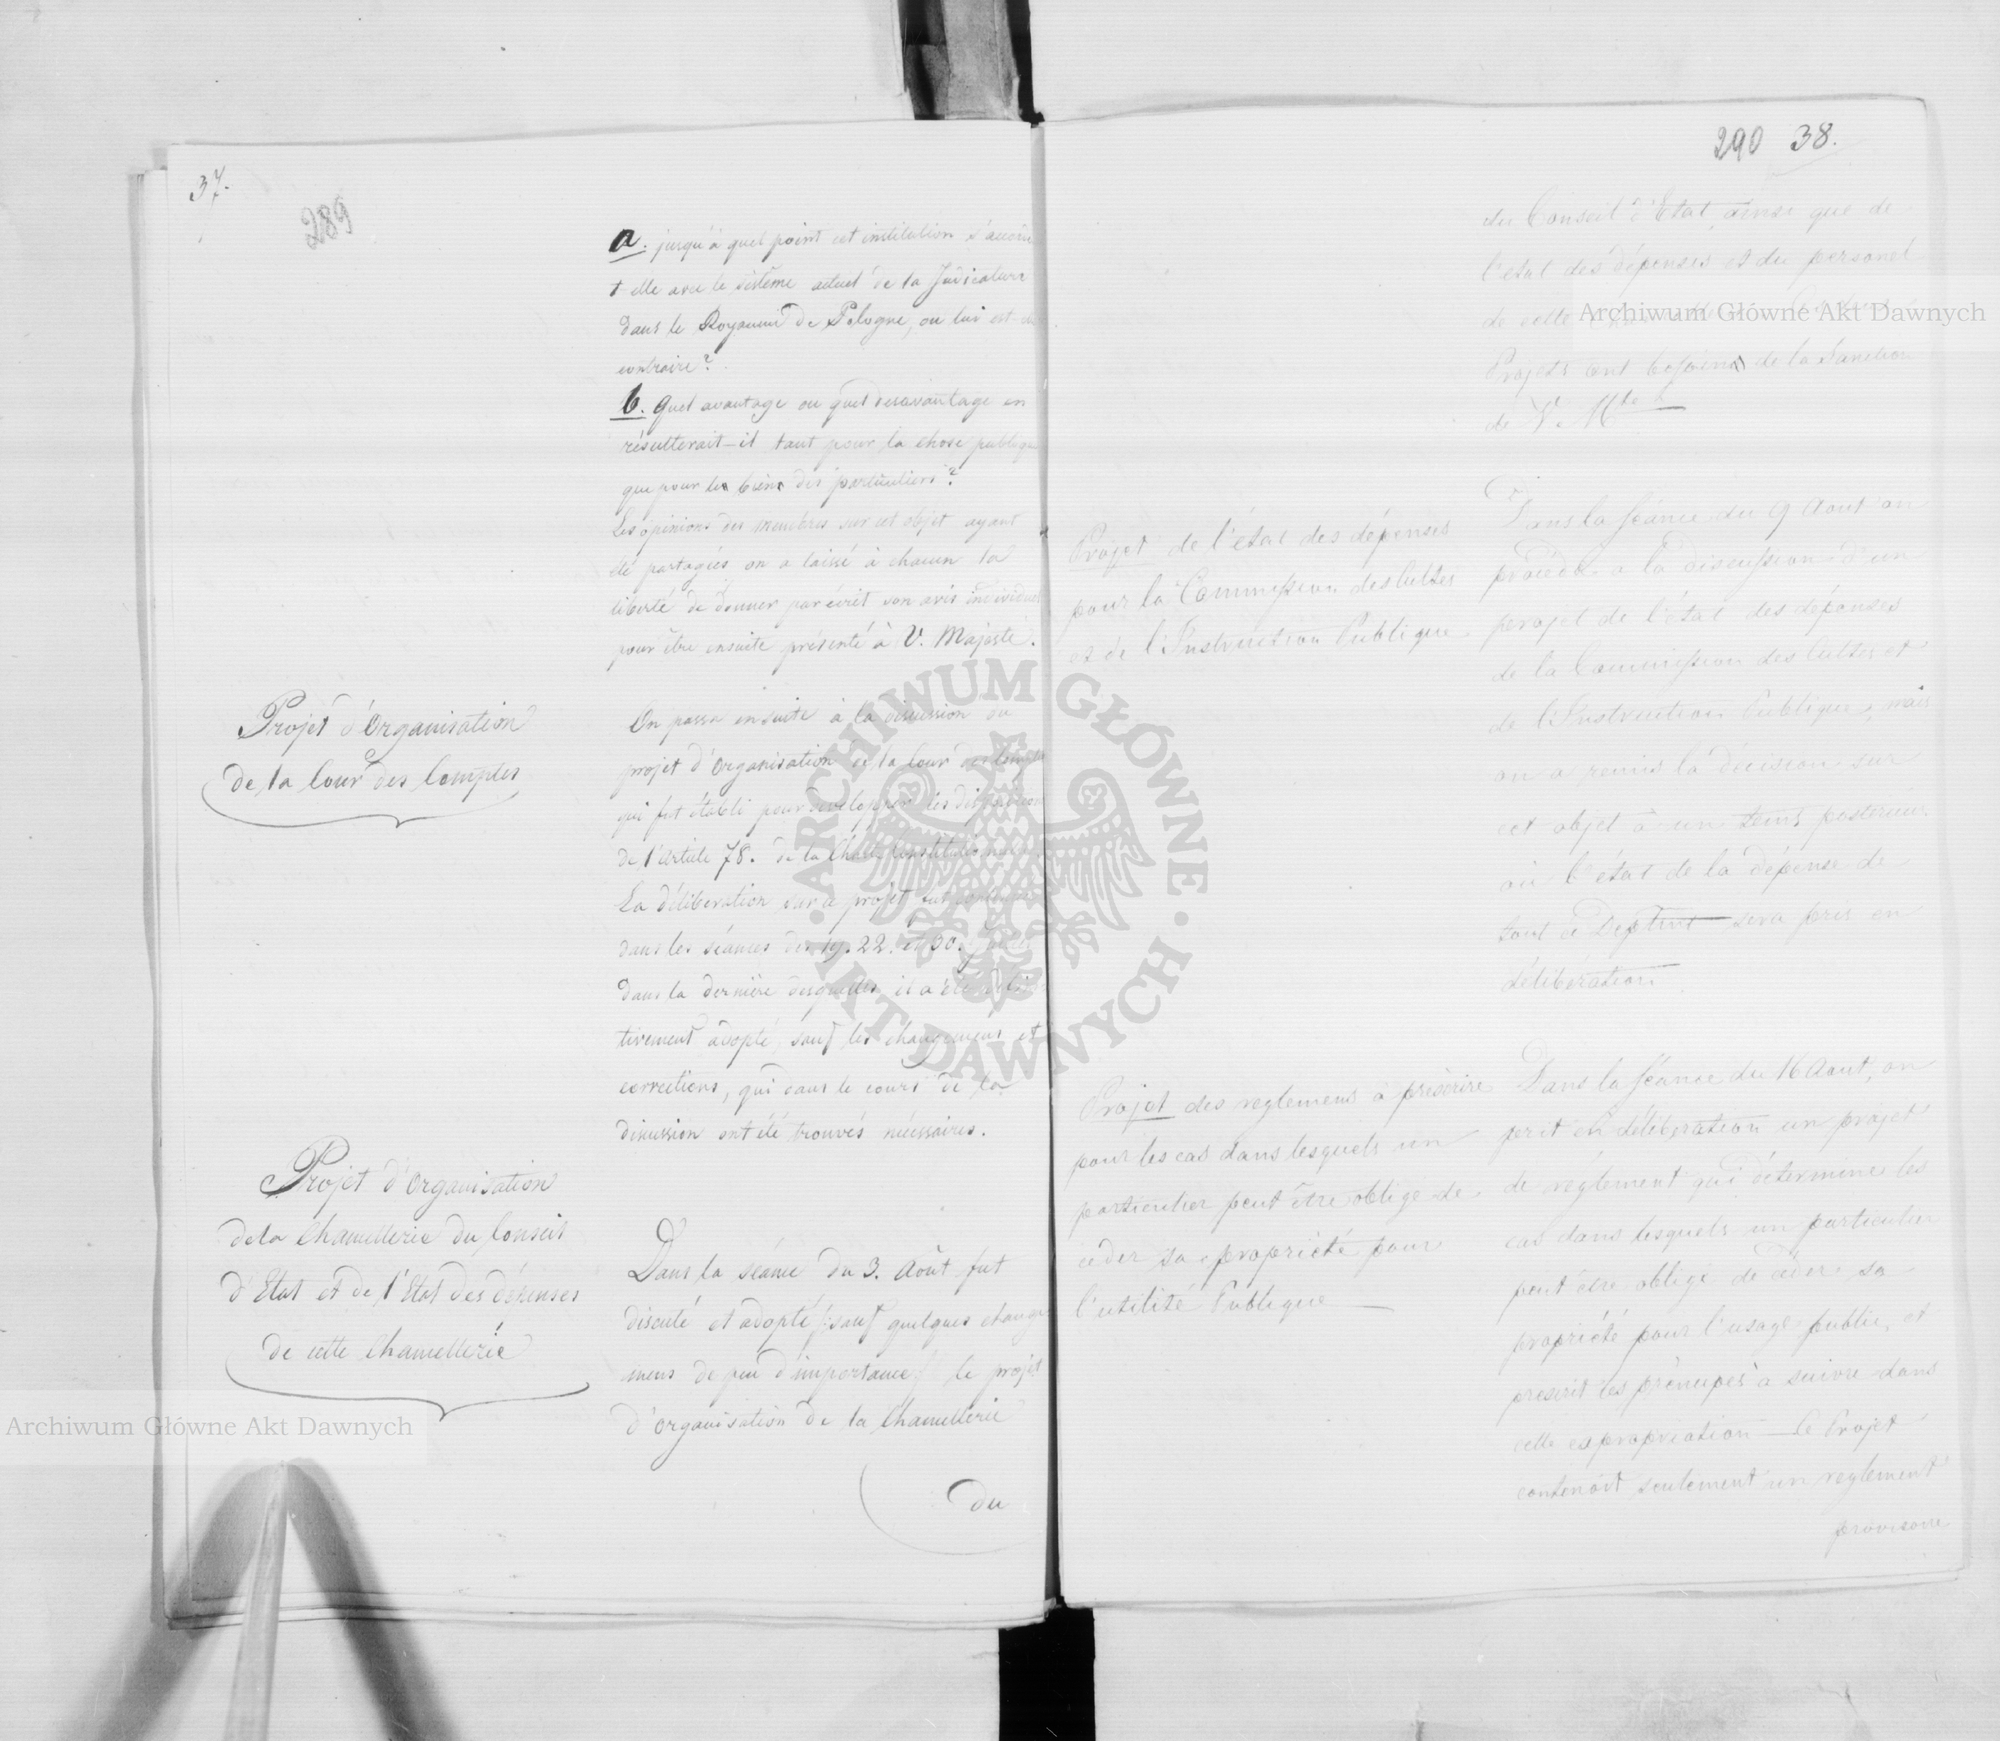 37.
289
a. jusqu'à quel point cet institution s'accor
t-elle avec le sistême actuel de la Judicature
dans le Royaume de Pologne, ou lui est
contraire?
b. Quel avantage ou quel desavantage en
résulterait-il tant pour la chose publique
que pour les biens des particuliers?
Les opinions des membres sur cet objet ayant
été partagées on a laissé à chacun la
liberté de donner par écrit son avis individuel
pour être ensuite présenté à V. Majesté.
Projet d'Organisation
de la Cour des Comptes
On passa ensuite à la discussion du
projet d'Organisation de la Cour des Comptes
qui fut établi pour developper les dispositions
de l'Article 78. de la Charte Constitutionnelle
La délibération sur ce projet fut
dans les séances des 19. 22. et 30.
dans la dernière desquelles il a été défini
tivement adopté, sauf les changemens et
corrections, qui dans le cours de la
discussion ont été trouvés nécessaires.
Projet d'Organisation
de la Chancellerie du Conseil
d'Etat et de l'Etat des dépenses
de cette Chancellerie
Dans la séance du 3. Août fut
discuté et adopté /: sauf quelques change
mens de peu d'importance / le projet
d'organisation de la Chancellerie
du
290 38.
du Conseil d'Etat, ainsi que de
l'etat des dépenses et du personel
de cette
Projets ont besoin de la Sanction
de V. Mté
Projet de l'état des dépenses
pour la Commission des Cultes
et de l'Instruction Publique
Dans la Séance du 9 Aout on
proceda a la discussion d'un
projet de l'état des dépenses
de la Commission des Cultes et
de l'Instruction Publique, mais
on a remis la décision sur
cet objet à un tems posterieur
où l'état de la dépense de
tout ce Deptmt sera pris en
délibération
Projet des reglemens à préscrire
pour les cas dans lesquels un
particulier peut être obligé de
céder sa propriété pour
l'utilité Publique
Dans la Séance du 16 Aout, on
prit en délibération un projet
de réglement qui détermine les
cas dans lesquels un particulier
peut être obligé de céder sa
propriété pour l'usage public, et
prescrit les principes à suivre dans
cette expropriation — Le Projet
contenoit seulement un reglement
provisoire
Archiwum Główne Akt Dawnych
Archiwum Główne Akt Dawnych
ARCHIWUM GŁÓWNE
AKT DAWNYCH